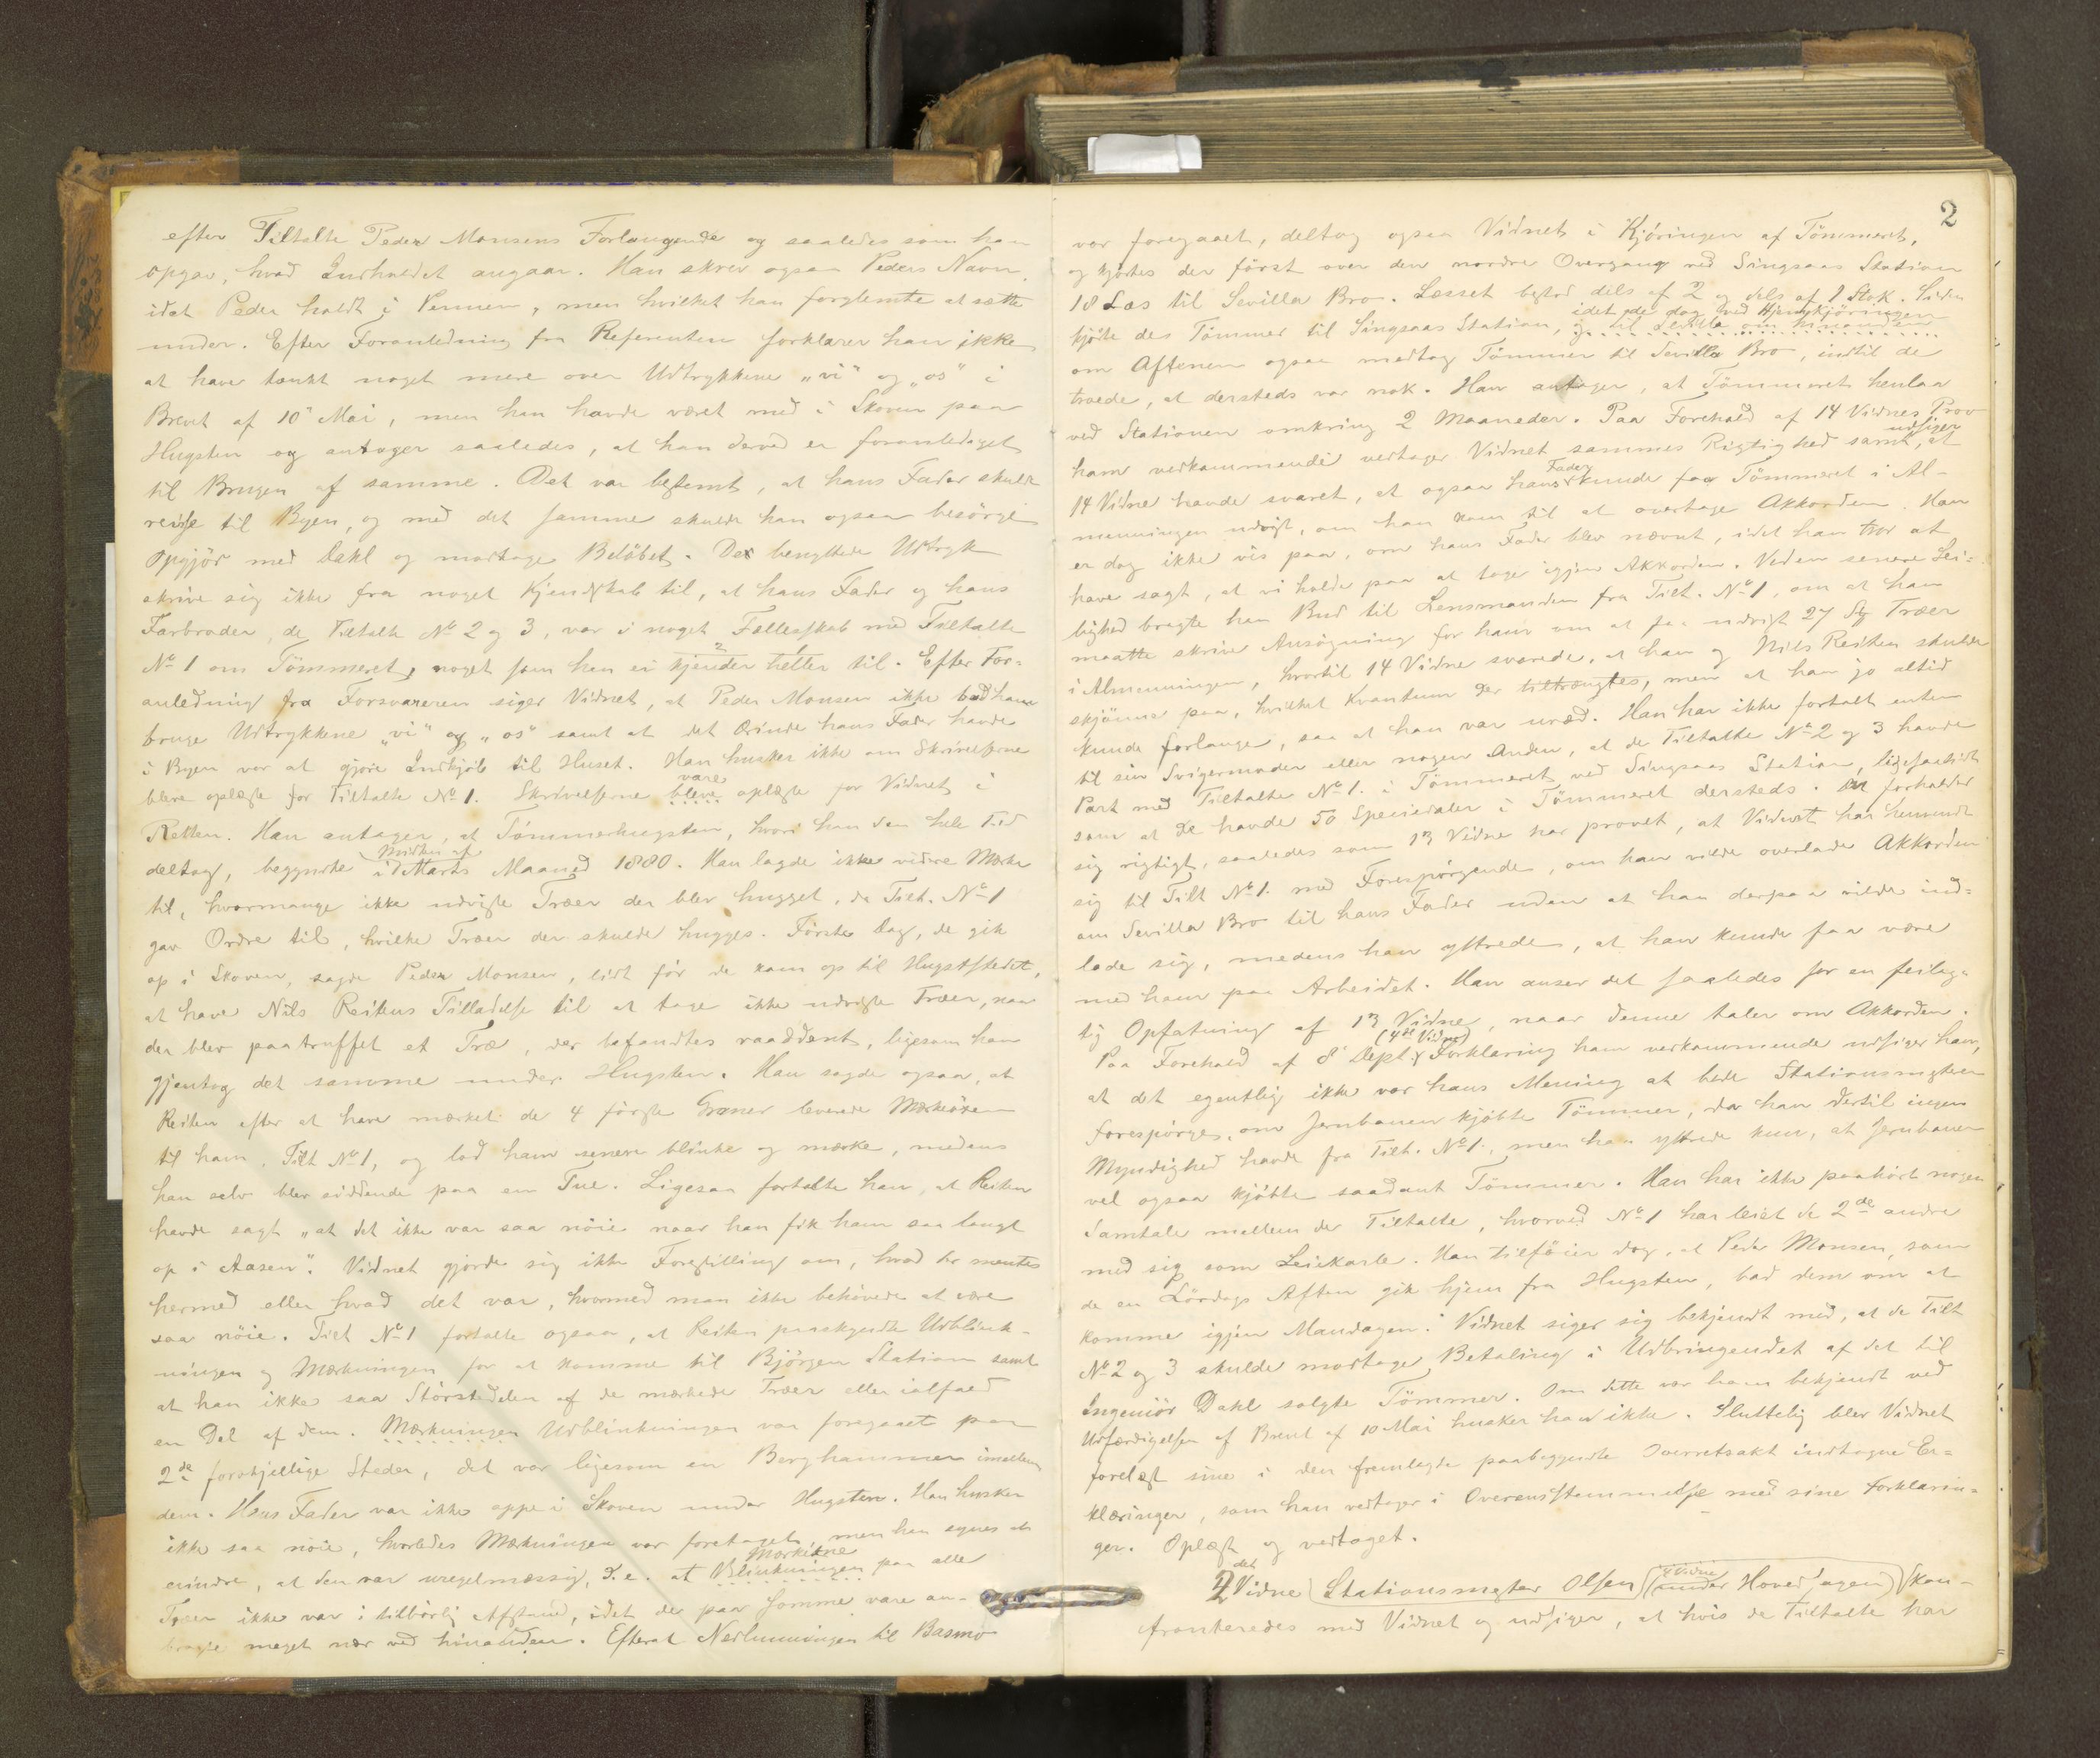 efter Tiltalte Peder Monsens Forlangende og saaledes som han
opgav, hvad Indholdet angaar. Han skrev ogsaa Peders Navn,
idet Peder holdt i Pennen, men hvilket han forglemte at sætte
under. Efter Foranledning fra Referenten forklarer han ikke
at have tænkt noget mere over Udtrykkene „vi" og „os" i
Brevet af 10' Mai, men han havde været med i Skoven paa
Hugsten og antager saaledes, at han derved er foranlediget
til Brugen af samme. Det var bestemt, at hans Fader skulde
reise til Byen, og med det samme skulde han ogsaa besörge
Opgjör med Dahl og modtage Belöbet. De benyttede Udtryk
skrive sig ikke fra noget Kjendskab til, at hans Fader og hans
Farbroder, de Tiltalte No 2 og 3, var i noget Fællesskab med Tiltalte
No 1 om Tömmeret, noget som han ei kjender heller til. Efter For-
anledning fra Forsvareren siger Vidnet, at Peder Monsen ikke bad ham
bruge Udtrykkene „vi" og „os" samt at det Ærinde hans Fader havde
i Byen var at gjöre Indkjöb til Huset. Han husker ikke om Skrivelserne
bleve oplæste for Tiltalte No 1. Skrivelserne bleve vare oplæste for Vidnet i
Retten. Han antager, at Tömmerhugsten, hvori han den hele Tid
deltog, begyndte i Midten af Marts Maaned 1880. Han lagde ikke videre Mærke
til, hvormange ikke udviste Træer der blev hugget, da Tilt. No 1
gav Ordre til, hvilke Træer der skulde hugges. Förste Dag, de gik
op i Skoven, sagde Peder Monsen, lidt för de kom op til Hugststedet,
at have Nils Reitens Tilladelse til at tage ikke udviste Træer, naar
der blev paatruffet et Træ, der befandtes raaddent, ligesom han
gjentog det samme under Hugsten. Han sagde ogsaa, at
Reiten efter at have mærket de 4 förste Graner leverede Mærkeöxen
til ham, Tilt No 1, og lod ham senere blinke og mærke, medens
han selv blev siddende paa en Tue. Ligesaa fortalte han, at Reiten
havde sagt „at det ikke var saa nöie naar han fik ham saa langt
op i Aasen". Vidnet gjorde sig ikke Forestilling om, hvad der mentes
hermed eller hvad det var, hvormed man ikke behövede at være
saa nöie. Tilt No 1 fortalte ogsaa, at Reiten paaskyndte Udblink-
ningen og Mærkningen for at komme til Björgen Station samt
at han ikke saa Störstedelen af de mærkede Træer eller ialfald
en Del af dem. Mærkningen Udblinkningen var foregaaet paa
2de forskjellige Steder, det var ligesom en Berghammer imellem
dem. Hans Fader var ikke oppe i Skoven under Hugsten. Han husker
ikke saa nöie, hvorledes Mærkningen var foretaget, men han synes at
erindre, at den var uregelmæssig, d.e. at Blinkningen Mærkerne paa alle
Træer ikke var i tilbörlig Afstand, idet de paa somme vare an-
bragte meget nær ved hinanden. Efterat Nedlunningen til Basmo
2
var foregaaet, deltog ogsaa Vidnet i Kjöringen af Tömmeret,
og kjörtes der först over den nordre Overgang ved Singsaas Station
18 Læs til Sevilla Bro. Læsset bestod dels af 2 og dels af 1 Stok. Siden
kjörte des Tömmer til Singsaas Station, og til Sevilla om hinanden idet de dog ved Hjemkjöringen
om Aftenen ogsaa medtog Tömmer til Sevilla Bro, indtil de
troede, at dersteds var nok. Han antager, at Tömmeret henlaa
ved Stationen omkring 2 Maaneder. Paa Forehold af 14 Vidnes Prov
ham vedkommende vedtager Vidnet sammes Rigtighed samt udsiger, at
14 Vidne havde svaret, at ogsaa hans Fader kunde faa Tömmeret i Al-
menningen udvist, om han kom til at overtage Akkorden. Han
er dog ikke vis paa, om hans Fader blev nævnt, idet han tror at
have sagt, at vi holde paa at tage igjen Akkorden. Ved en senere Lei-
lighed bragte han Bud til Lensmanden fra Tilt. No 1, om at han
maatte skrive Ansögning for ham om at faa udvist 27 St Træer
i Almenningen, hvortil 14 Vidne svarede, at han og Nils Reiten skulde
skjönne paa, hvilket Kvantum der tiltrængtes, men at han jo altid
kunde forlange, saa at han var uræd. Han har ikke fortalt enten
til sin Svigermoder eller nogen Anden, at de Tiltalte No 2 og 3 havde
Part med Tiltalte No 1. i Tömmeret ved Singsaas Station, ligesaalidt
som at de havde 50 Speciedaler i Tömmeret dersteds. Det forholder
sig rigtigt, saaledes som 13 Vidne har provet, at Vidnet har henvendt
sig til Tilt No 1. med Forespörgende, om han vilde overlade Akkorden
om Sevilla Bro til hans Fader uden at han derpaa vilde ind-
lade sig, medens han yttrede, at han kunde faa være
med ham paa Arbeidet. Han anser det saaledes for en feilag-
tig Opfatning af 13 Vidne, naar denne taler om Akkorden.
Paa Forehold af 8' Dept's (4de Vidne) Forklaring ham vedkommende udsiger han,
at det egentlig ikke var hans Mening at bede Stationsmesteren
forespörges, om Jernbanen kjöbte Tömmer, da han dertil ingen
Myndighed havde fra Tilt. No 1., men han yttrede kun, at Jernbanen
vel ogsaa kjöbte saadant Tömmer. Han har ikke paahört nogen
Samtale mellem de Tiltalte, hvorved No 1 har leiet de 2de andre
med sig som Leiekarle. Han tilföier dog, at Peder Monsen, som
de en Lördags Aften gik hjem fra Hugsten, bad dem om at
komme igjen Mandagen. Vidnet siger sig bekjendt med, at de Tilt
No 2 og 3 skulde modtage Betaling i Udbringendet af det til
Ingeniör Dahl solgte Tömmer. Om dette var ham bekjendt ved
Udfærdigelsen af Brevet af 10 Mai husker han ikke. Sluttelig blev Vidnet
forelæst sine i den fremlagte paabegyndte Overretsakt indtagne Er-
klæringer, som han vedtager i Overensstemmelse med sine Forklarin-
ger. Oplæst og vedtaget.
2det Vidne (Stationsmester Olsen) (4 Vidne under Hovedsagen) kon-
fronteredes med Vidnet og udsiger, at hvis de Tiltalte har